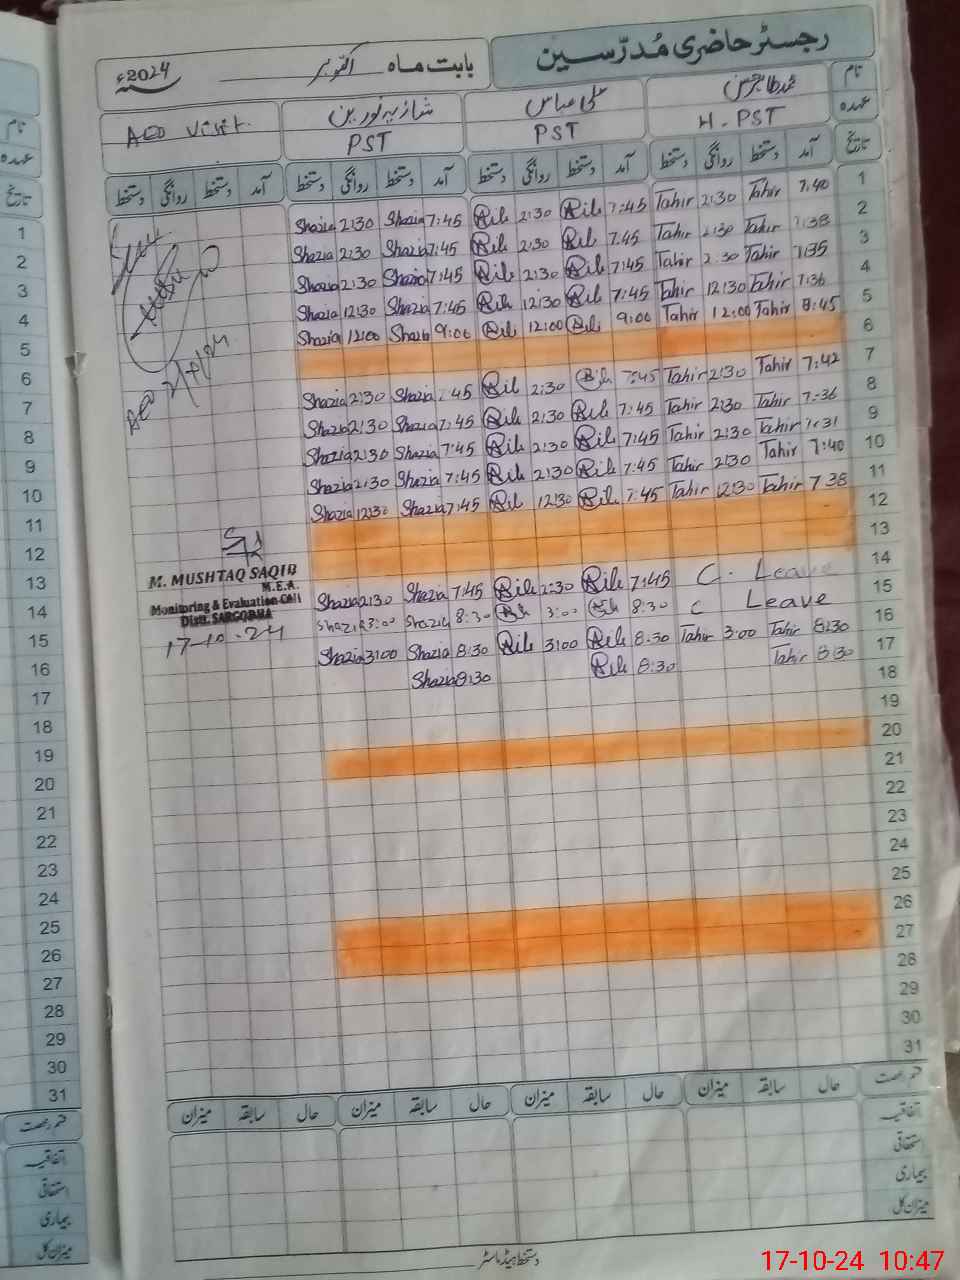 رجسٹر حاضری مُدرّسین
بابت ماہ اکتوبر 2024ء
نام علی عباس شازیہ نورین
عہدہ H-PST PST PST AEO Visit
تاریخ آمد دستخط روانگی دستخط آمد دستخط روانگی دستخط آمد دستخط روانگی دستخط آمد دستخط روانگی دستخط
1 7:40 Tahir 2:30 Tahir 7:45 2:30 7:45 Shazia 2:30 Shazia
2 7:38 Tahir 2:30 Tahir 7:45 2:30 7:45 Shazia 2:30 Shazia
3 7:35 Tahir 2:30 Tahir 7:45 2:30 7:45 Shazia 2:30 Shazia
4 7:36 Tahir 12:30 Tahir 7:45 12:30 7:45 Shazia 12:30 Shazia
5 8:45 Tahir 12:00 Tahir 9:00 12:00 9:00 Shazia 12:00 Shazia
6
7 7:42 Tahir 2:30 Tahir 7:45 2:30 7:45 Shazia 2:30 Shazia
8 7:36 Tahir 2:30 Tahir 7:45 2:30 7:45 Shazia 2:30 Shazia
9 7:31 Tahir 2:30 Tahir 7:45 2:30 7:45 Shazia 2:30 Shazia
10 7:40 Tahir 2:30 Tahir 7:45 2:30 7:45 Shazia 2:30 Shazia
11 7:38 Tahir 12:30 Tahir 7:45 12:30 7:45 Shazia 12:30 Shazia
12
13
14 C. Leave 7:45 2:30 7:45 Shazia 2:30 Shazia
15 C Leave 8:30 3:00 8:30 Shazia 3:00 Shazia
16 8:30 Tahir 3:00 Tahir 8:30 3:00 8:30 Shazia 3:00 Shazia
17 8:30 Tahir 8:30 8:30 Shazia
18
19
20
21
22
23
24
25
26
27
28
29
30
31
M. MUSHTAQ SAQIB
M.E.A.
Monitoring & Evaluation Cell
Distt. SARGODHA
17-10-24
قسم رخصت حال سابقہ میزان حال سابقہ میزان حال سابقہ میزان حال سابقہ میزان
اتفاقیہ
استحقاقی
بیماری
میزان کل
دستخط ہیڈ ماسٹر
نام
عہدہ
تاریخ
1
2
3
4
5
6
7
8
9
10
11
12
13
14
15
16
17
18
19
20
21
22
23
24
25
26
27
28
29
30
31
قسم رخصت
اتفاقیہ
استحقاقی
بیماری
میزان کل
17-10-24 10:47